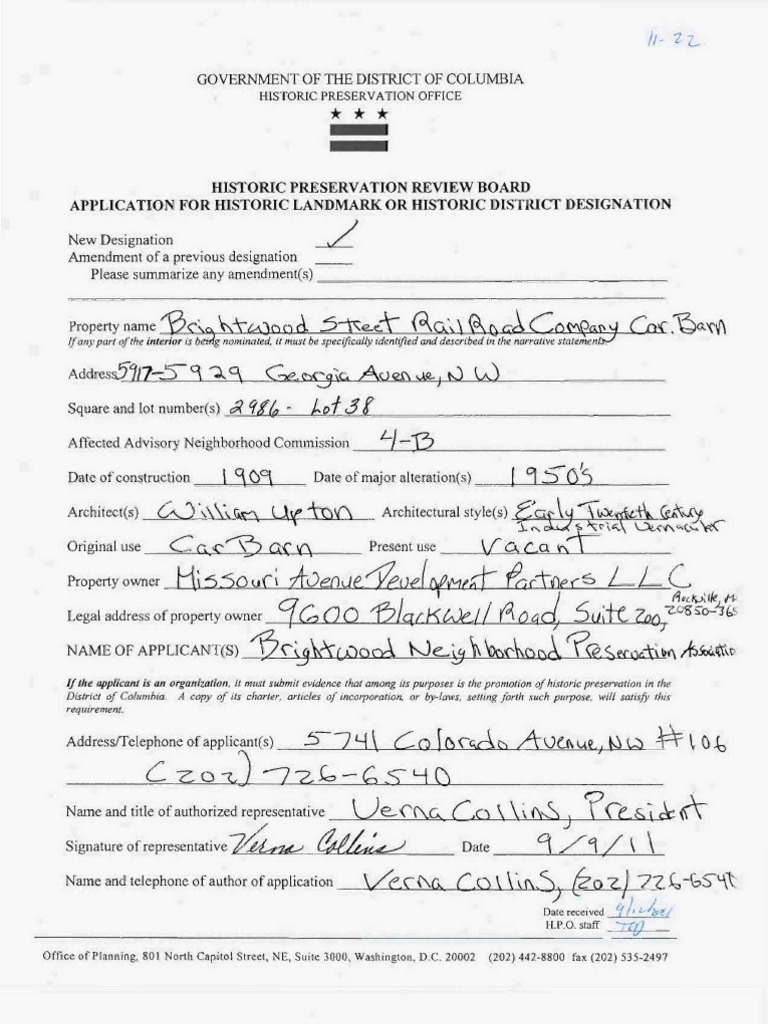 11-22
GOVERNMENT OF THE DISTRICT OF COLUMBIA
HISTORIC PRESERVATION OFFICE
HISTORIC PRESERVATION REVIEW BOARD
APPLICATION FOR HISTORIC LANDMARK OR HISTORIC DISTRICT DESIGNATION
New Designation ✓
Amendment of a previous designation
Please summarize any amendment(s)
Property name Brightwood Street RailRoad Company Car Barn
If any part of the interior is being nominated, it must be specifically identified and described in the narrative statements.
Address 5917-5929 Georgia Avenue, NW
Square and lot number(s) 2986 - Lot 38
Affected Advisory Neighborhood Commission 4-B
Date of construction 1909 Date of major alteration(s) 1950's
Architect(s) William Upton Architectural style(s) Early Twentieth Century
Industrial Vernacular
Original use Car Barn Present use Vacant
Property owner Missouri Avenue Development Partners LLC
Rockville, M
Legal address of property owner 9600 Blackwell Road, Suite 200, 20850-365
NAME OF APPLICANT(S) Brightwood Neighborhood Preservation Associatio
If the applicant is an organization, it must submit evidence that among its purposes is the promotion of historic preservation in the
District of Columbia. A copy of its charter, articles of incorporation, or by-laws, setting forth such purpose, will satisfy this
requirement.
Address/Telephone of applicant(s) 5741 Colorado Avenue, NW #106
(202) 726-6540
Name and title of authorized representative Verna Collins, President
Signature of representative Verna Collins Date 9/9/11
Name and telephone of author of application Verna Collins, (202) 726-654
Date received
H.P.O. staff
Office of Planning, 801 North Capitol Street, NE, Suite 3000, Washington, D.C. 20002 (202) 442-8800 fax (202) 535-2497